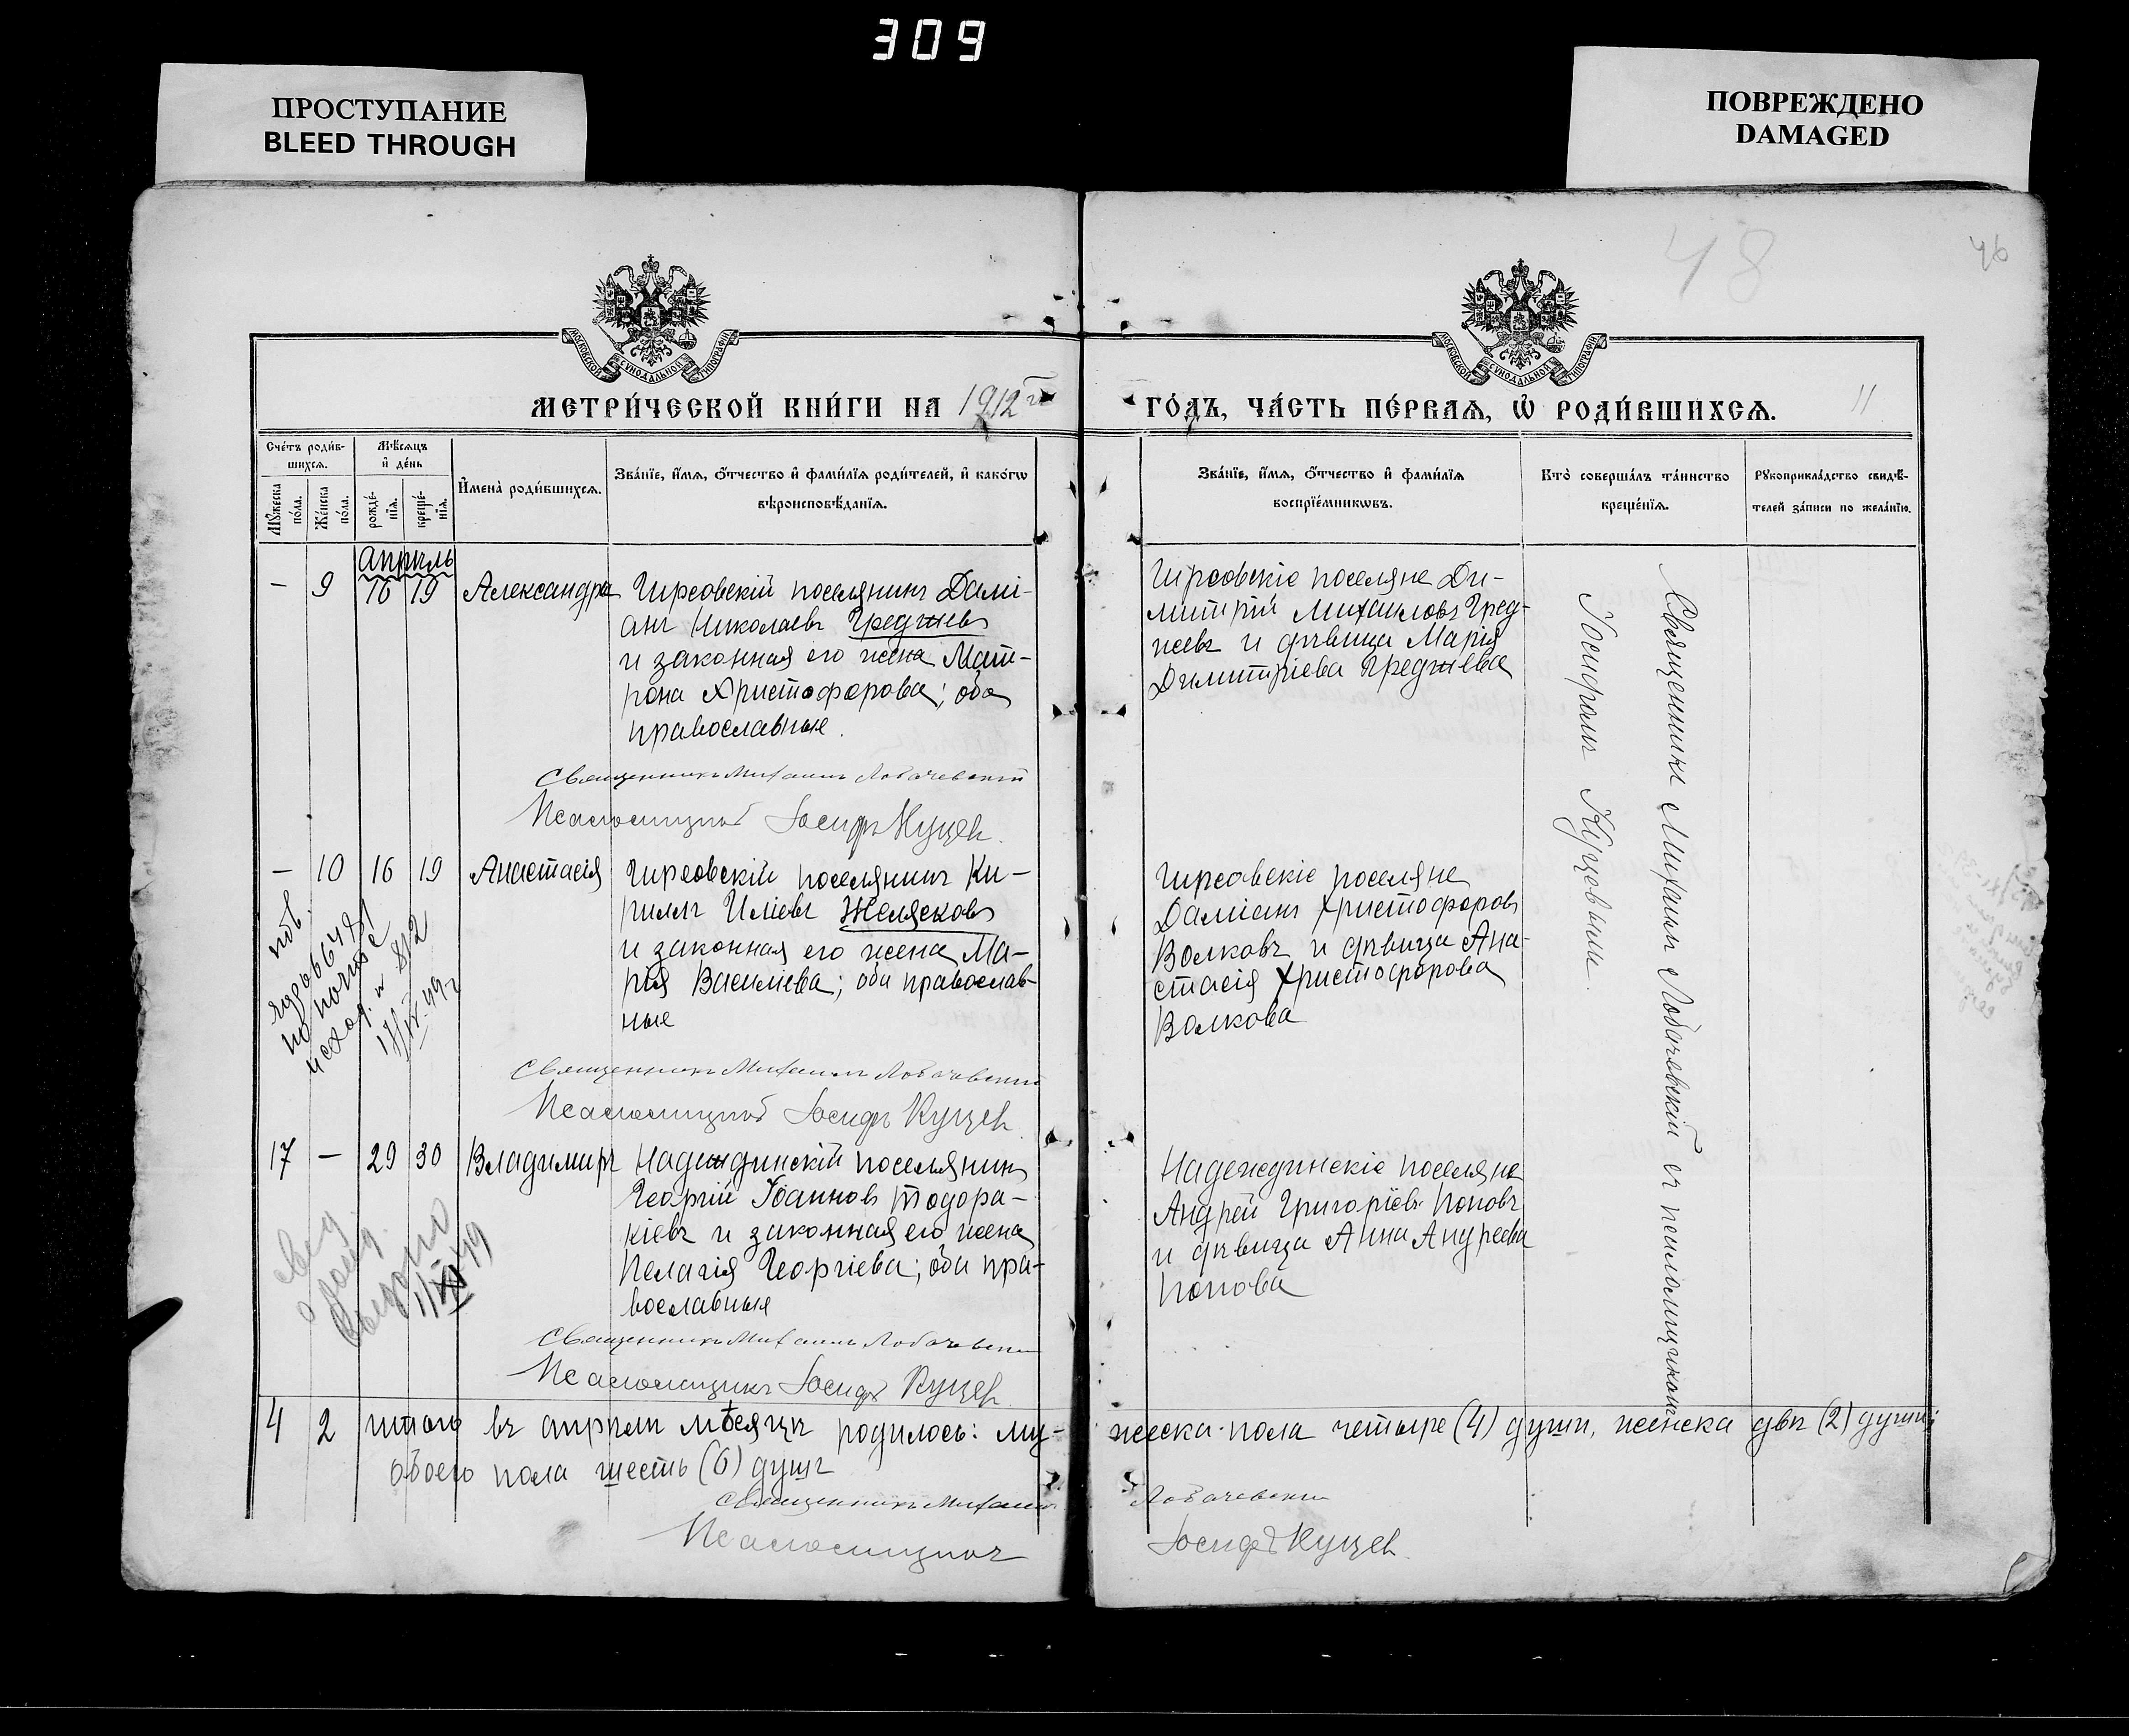 309
ПРОСТУПАНИЕ
BLEED THROUGH
ПОВРЕЖДЕНО
DAMAGED
48
46
МОСКОВСКОЙ СѴНОДАЛЬНОЙ ТИПОГРАФІИ
МОСКОВСКОЙ СѴНОДАЛЬНОЙ ТИПОГРАФІИ
МЕТРИ́ЧЕСКОЙ КНИ́ГИ НА 1912 го
ГО́ДЪ, ЧА́СТЬ ПЕ́РВАѦ, Ѡ РОДИ́ВШИХСѦ.
11
Сче́тъ роди́в-
шихсѧ.
Мѣ́сѧцъ
и҆ де́нь
И҆мена̀ роди́вшихсѧ.
Зва́нїе, и҆́мѧ, ѻ҆́тчество и҆ фами́лїѧ роди́телей, и҆ како́гѡ
вѣроисповѣ́данїѧ.
Мꙋ́жеска
по́ла.
Же́нска
по́ла.
рожде́-
нїѧ.
креще́-
нїѧ.
Зва́нїе, и҆́мѧ, ѻ҆́тчество и҆ фами́лїѧ
воспрїе́мникѡвъ.
Кто̀ соверша́лъ та́инство
креще́нїѧ.
Рꙋкоприкла́дство свидѣ́-
телей за́писи по жела́нїю.
Апрѣль
— 9 16 19 Александра Гирсовскій поселянинъ Дамі-
анъ Николаевъ Греджевъ
и законная его жена Мат-
рона Христофорова; оба
православные.
Священникъ Михаилъ Лобачевскій
Псаломщикъ Іосифъ Куцевъ
Гирсовскіе поселяне Ди-
митрій Михаиловъ Гред-
жевъ и дѣвица Марія
Димитріева Греджева
Священникъ Михаилъ Лобачевскій съ псаломщикомъ
Іосифомъ Куцовымъ.
— 10 16 19 Анастасія Гирсовскій поселянинъ Ки-
риллъ Иліевъ Желясковъ
и законная его жена Ма-
рія Василіева; оба православ-
ные
пов.
по почте
исход. № 812
Священникъ Михаилъ Лобачевскій
Псаломщикъ Іосифъ Куцевъ
Гирсовскіе поселяне
Даміанъ Христофоровъ
Волковъ и дѣвица Ана-
стасія Христофорова
Волкова
17 — 29 30 Владимиръ Надеждинскій поселянинъ
Георгій Іоанновъ Тодора-
кіевъ и законная его жена
Пелагія Георгіева; оба пра-
вославные
свид.
о рожд.
выдано
Священникъ Михаилъ Лобачевскій
Псаломщикъ Іосифъ Куцевъ
Надеждинскіе поселяне
Андрей Григоріевъ Поповъ
и дѣвица Анна Андреева
Попова
4 2 Итого въ апрѣлѣ мѣсяцѣ родилось: му-
жеска пола четыре (4) души, женска двѣ (2) души;
обоего пола шесть (6) душъ
Священникъ Михаилъ Лобачевскій
Псаломщикъ Іосифъ Куцевъ